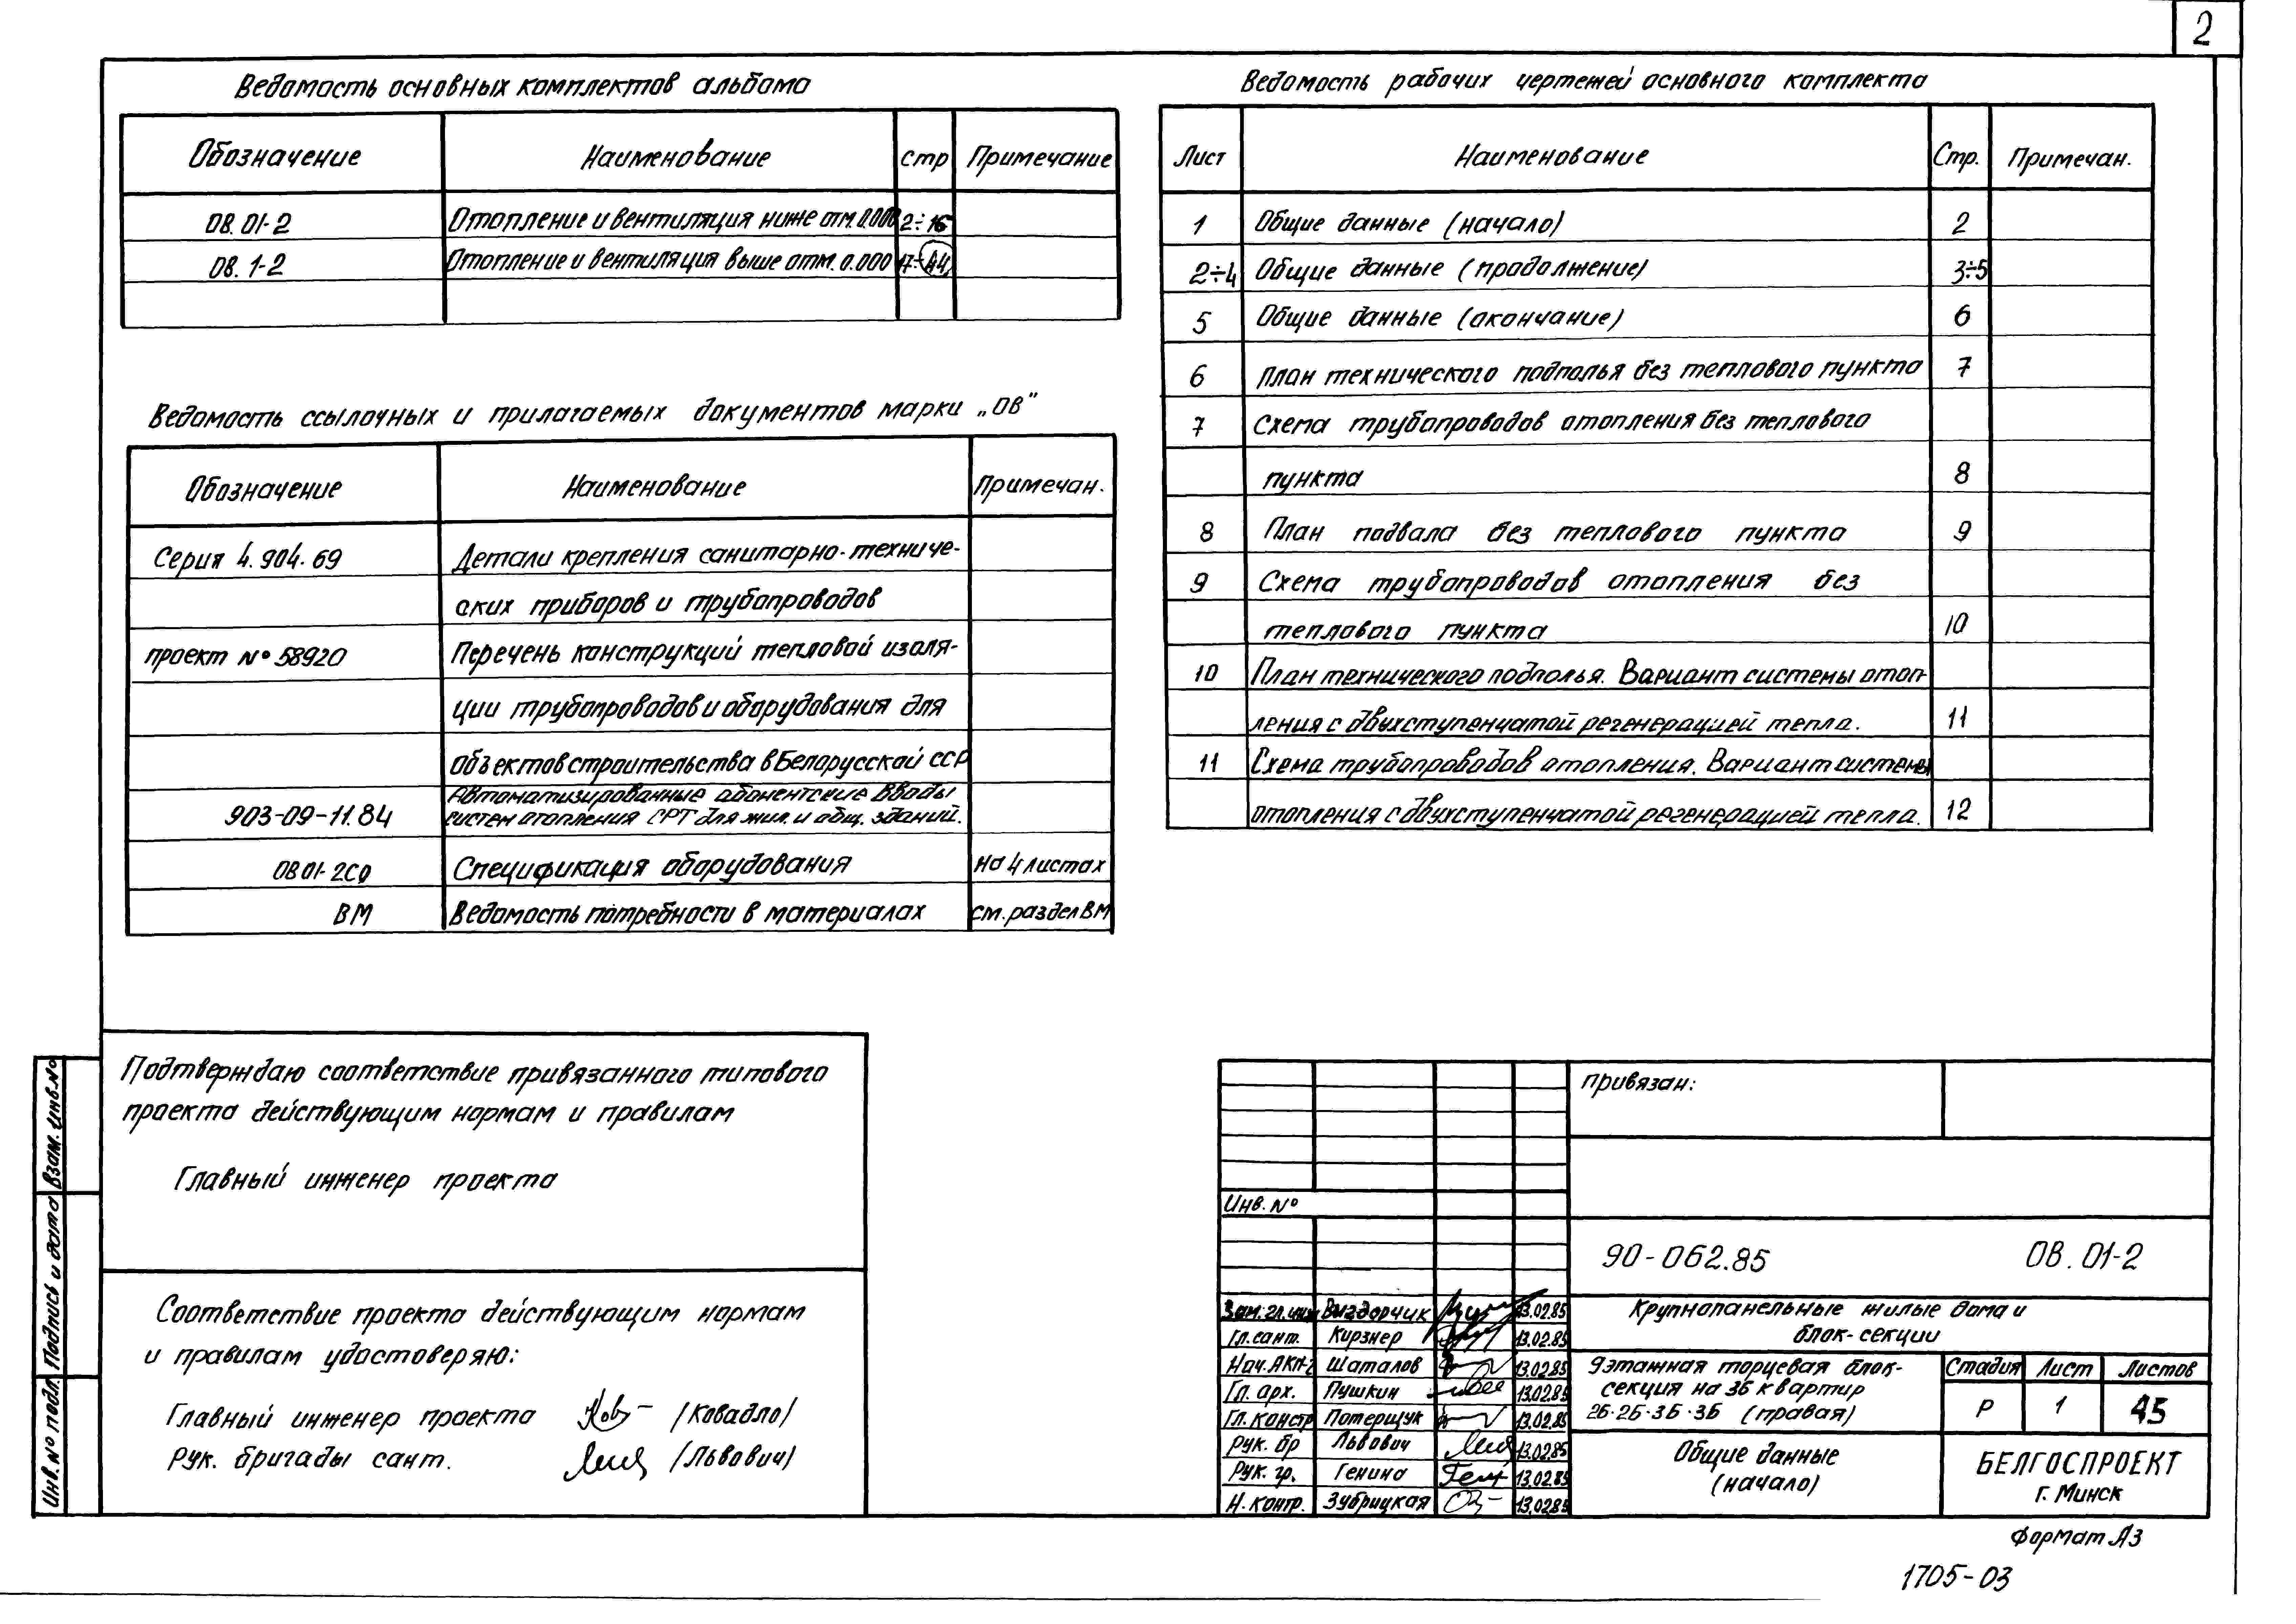 2
Ведомость основных комплектов альбома
Обозначение Наименование стр Примечание
ОВ.01-2 Отопление и вентиляция ниже отм.0.000 2÷16
ОВ.1-2 Отопление и вентиляция выше отм.0.000 17÷44
Ведомость ссылочных и прилагаемых документов марки „ОВ"
Обозначение Наименование Примечан.
Серия 4.904-69 Детали крепления санитарно-техниче-
ских приборов и трубопроводов
проект №58920 Перечень конструкций тепловой изоля-
ции трубопроводов и оборудования для
объектов строительства в Белорусской ССР
Автоматизированные абонентские вводы
903-09-11.84 систем отопления СРТ для жил. и общ. зданий.
ОВ01-2СО Спецификация оборудования на 4 листах
ВМ Ведомость потребности в материалах см. раздел ВМ
Ведомость рабочих чертежей основного комплекта
Лист Наименование Стр. Примечан.
1 Общие данные (начало) 2
2÷4 Общие данные (продолжение) 3÷5
5 Общие данные (окончание) 6
6 План технического подполья без теплового пункта 7
7 Схема трубопроводов отопления без теплового
пункта 8
8 План подвала без теплового пункта 9
9 Схема трубопроводов отопления без
теплового пункта 10
10 План технического подполья. Вариант системы отоп-
ления с двухступенчатой регенерацией тепла. 11
11 Схема трубопроводов отопления. Вариант системы
отопления с двухступенчатой регенерацией тепла. 12
Подтверждаю соответствие привязанного типового
проекта действующим нормам и правилам
Главный инженер проекта
Соответствие проекта действующим нормам
и правилам удостоверяю:
Главный инженер проекта /Ковадло/
Рук. бригады сант. /Львович/
Взам. инв.№
Подпись и дата
Инв.№ подл.
привязан:
Инв.№
90-062.85 ОВ.01-2
Зам.гл.инж Выздорчик 13.02.85
Гл.сант. Кирзнер 13.02.85
Нач.АКП-2 Шаталов 13.02.85
Гл. арх. Пушкин 13.02.85
Гл. констр Потерщук 13.02.85
Рук. бр Львович 13.02.85
Рук. гр. Генина 13.02.85
Н. контр. Зубрицкая 13.02.85
Крупнопанельные жилые дома и
блок-секции
9этажная торцевая блок-
секция на 36 квартир
2Б-2Б-3Б-3Б (правая)
Стадия Лист Листов
Р 1 45
Общие данные
(начало)
БЕЛГОСПРОЕКТ
г. Минск
Формат А3
1705-03